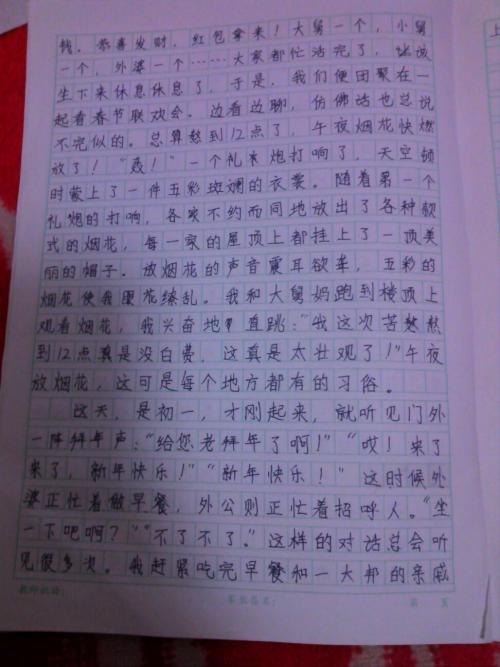 钱。恭喜发财，红包拿来！大舅一个，小舅
一个，外婆一个……大家都忙活完了，也该
坐下来休息休息了，于是，我们便团聚在一
起看春节联欢会。边看边聊，仿佛话也总说
不完似的。总算熬到12点了，午夜烟花快燃
放了！“轰！”一个礼炮打响了，天空顿
时蒙上了一件五彩斑斓的衣裳。随着第一个
礼炮的打响，各家不约而同地放出了各种款
式的烟花，每一家的屋顶上都挂上了一顶美
丽的帽子。放烟花的声音震耳欲聋，五彩的
烟花使我眼花缭乱。我和大舅妈跑到楼顶上
观看烟花，我兴奋地直跳：“我这次苦熬熬
到12点真是没白费，这真是太壮观了！”午夜
放烟花，这可是每个地方都有的习俗。
这天，是初一，才刚起来，就听见门外
一阵拜年声：“给您老拜年了啊！”“哎！来了
来了，新年快乐！”“新年快乐！”这时候外
婆正忙着做早餐，外公则正忙着招呼人。“坐
一下吧啊？”“不了不了。”这样的对话总会听
见很多次。我赶紧吃完早餐和一大邦的亲戚
教师批语：
家长签名：
第 页
上